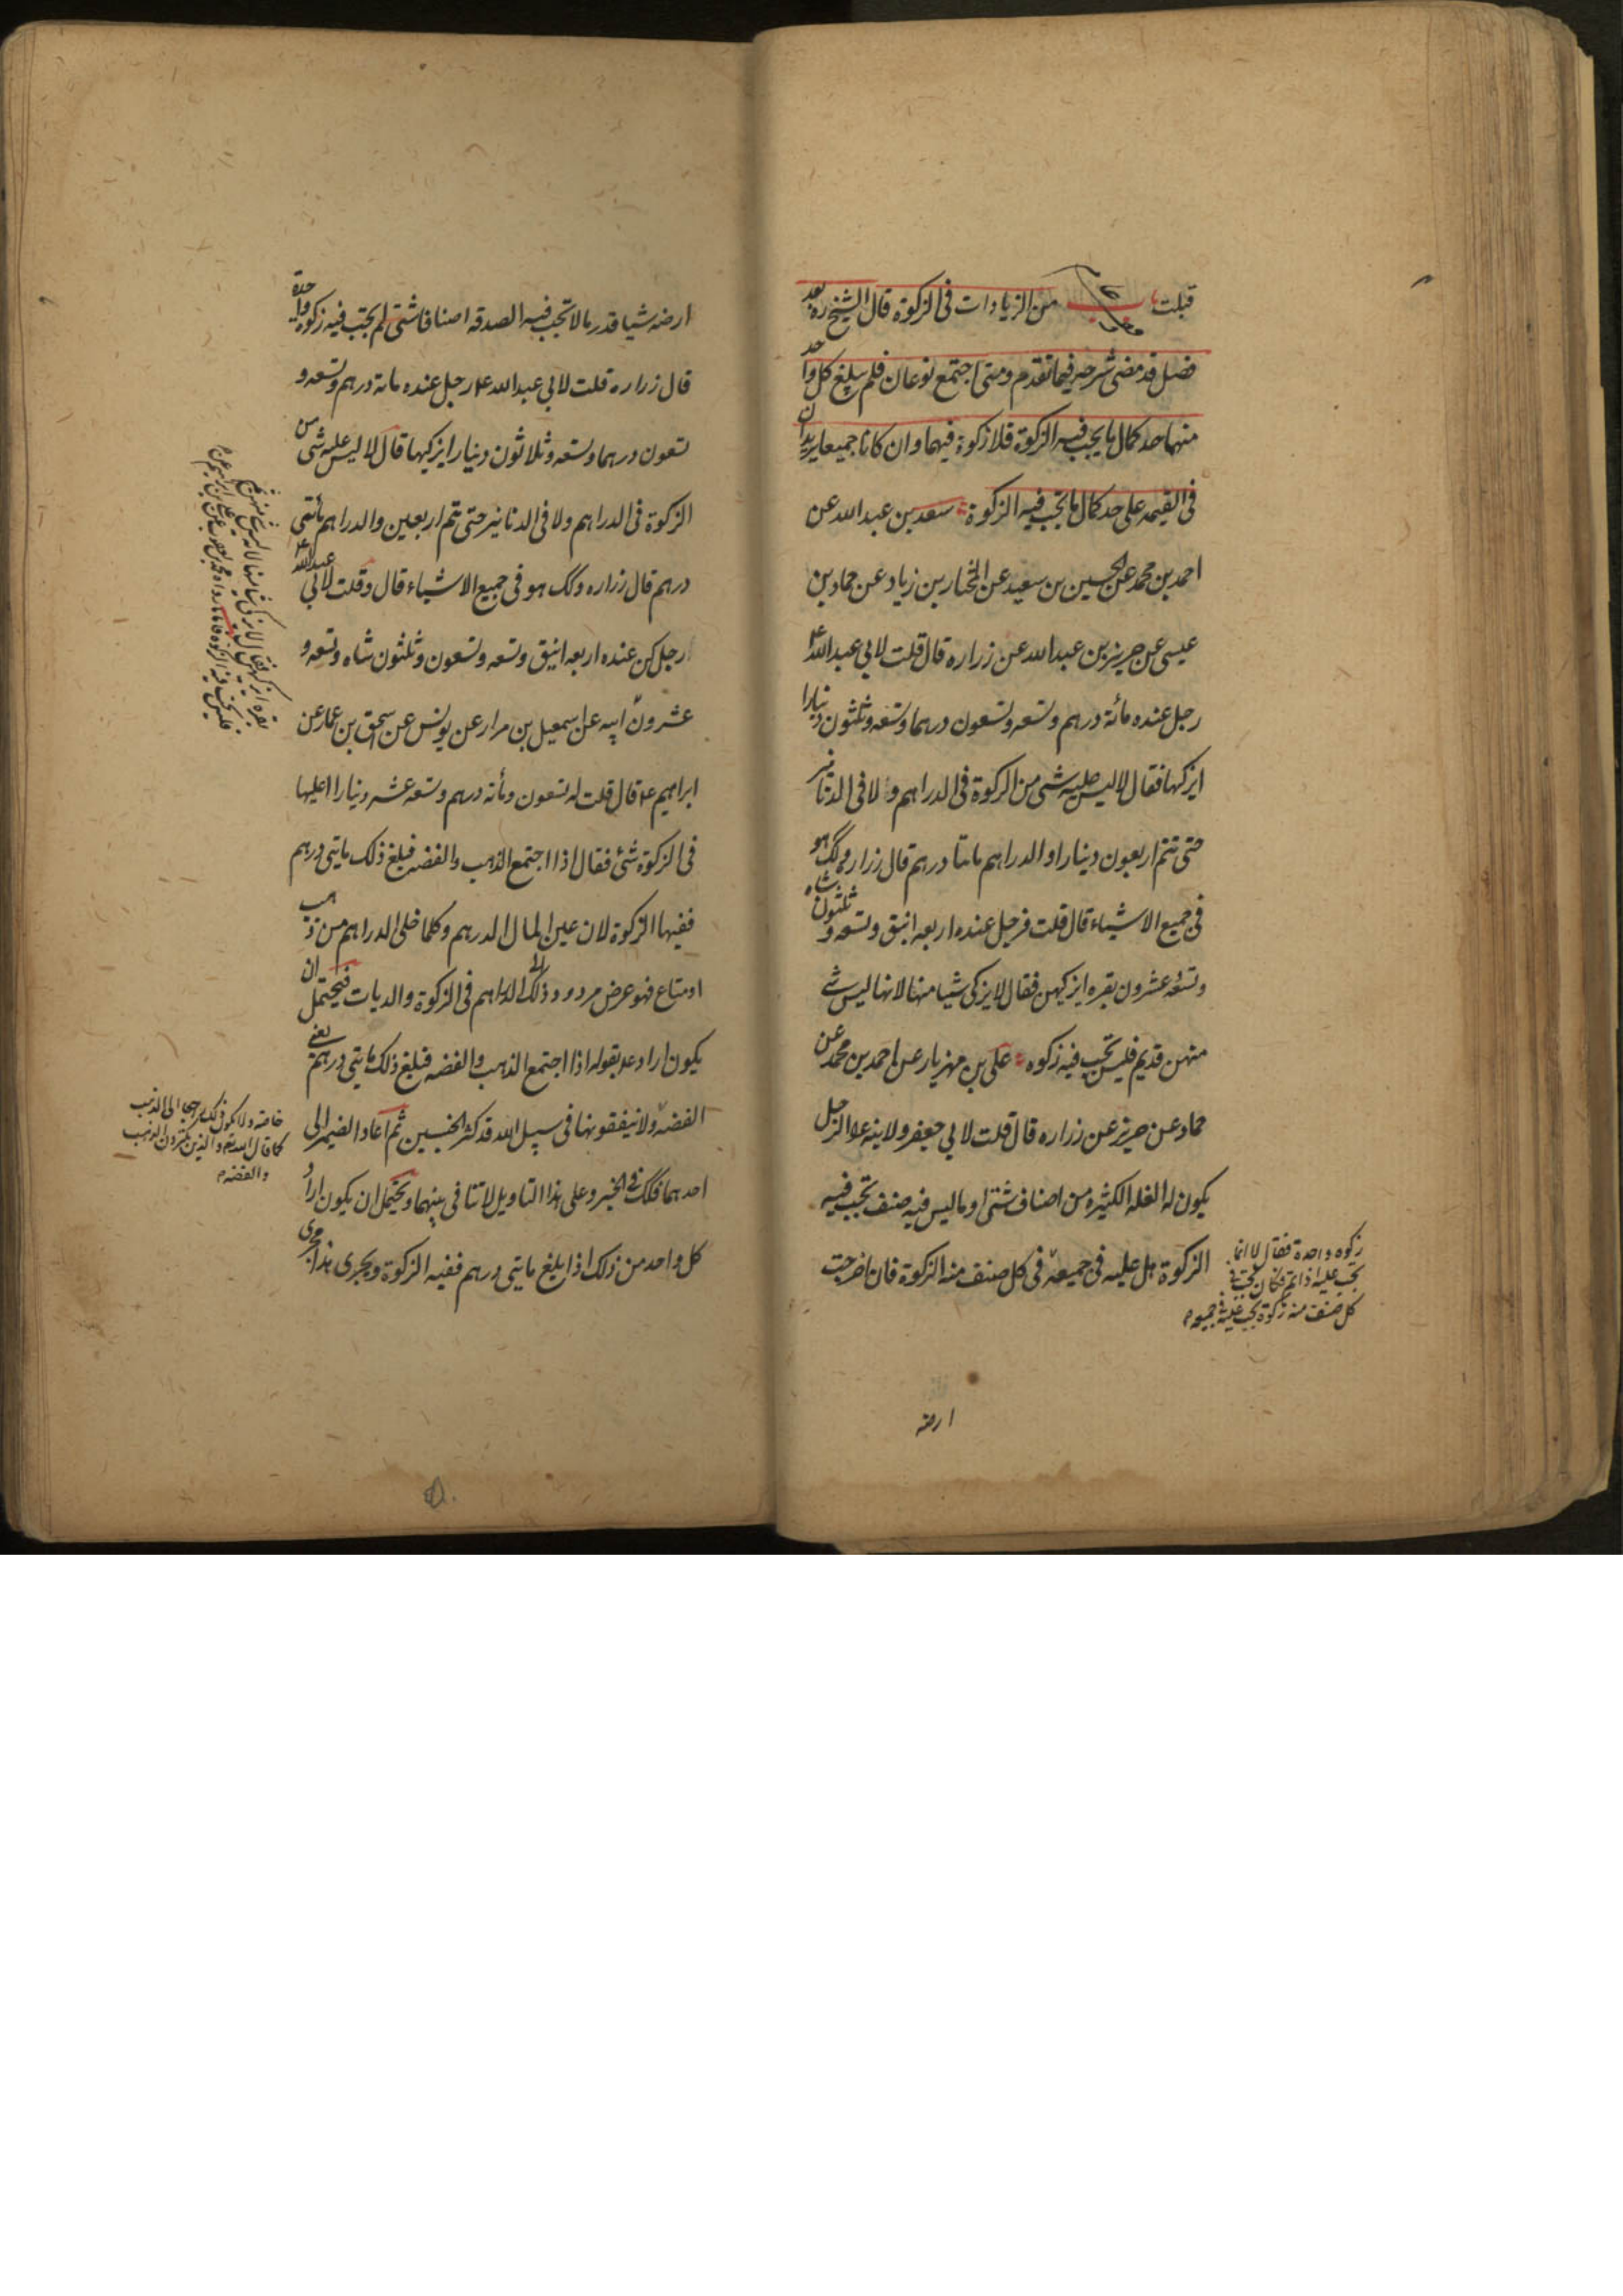 قبلت باب من الزيادات فى الزكوة قال الشيخ ره بعد
فصل قد مضى شرحه فيما تقدم ومتى اجتمع نوعان فلم يبلغ كل واحد
منهما حد كمال ما يجب فيه الزكوة فلا زكوة فيهما وان كانا جميعا يزيدان
فى القيمه على حد كمال ما تجب فيه الزكوة سعد بن عبد الله عن
احمد بن محمد عن الحسين بن سعيد عن المختار بن زياد عن حماد بن
عيسى عن حريز بن عبد الله عن زراره قال قلت لابي عبد الله ع
رجل عنده مائة درهم وتسعه وتسعون درهما وتسعه وثلثون دينارا
ايزكها فقال لا ليس عليه شى من الزكوة فى الدراهم ولا فى الدنانير
حتى تتم اربعون دينارا او الدراهم مائتا درهم قال زراره وكك هو
فى جميع الاشياء قال قلت فرجل عنده اربعه انيق وتسعه و ثلثون شاه
وتسعه عشرون بقره ايزكيهن فقال لا يزكى شيا منها لانها ليس شى
منهن قد يتم فليس تجب فيه زكوه على بن مهزيار عن احمد بن محمد عن
حماد عن حريز عن زراره قال قلت لابي جعفر ولابنه ع الرجل
يكون له الغله الكثيره من اصناف شتى او ماليس فيه صنف تجب فيه
الزكوة هل عليه فى جميعه فى كل صنف منه الزكوة فان اخرجت
زكوه واحدة فقال لا انما
تجب عليه اذا تم فكان تجب فى
كل صنف منه زكوة تجب عليه فى جميعه م
ارضه
ارضه شيا قدر ما لا تجب فيه الصدقه اصنافا شتى لم يجب فيه زكوة واحدة
قال زراره قلت لابي عبد الله ع رجل عنده مائة درهم وتسعه و
تسعون درهما وتسعه وثلاثون دينارا ايزكيها قال لا ليس عليه شى من
الزكوة فى الدراهم ولا فى الدنانير حتى يتم اربعين والدراهم مأتى
درهم قال زراره وكك هو فى جميع الاشياء قال وقلت لابي عبد الله ع
رجل كن عنده اربعه انيق وتسعه وتسعون وثلثون شاه وتسعه و
عشرون ابيه عن اسمعيل بن مرار عن يونس عن سحق بن عمار عن
ابراهيم ع قال قلت له تسعون ومأته درهم وتسعه عشر دينارا اعليها
فى الزكوة شئ فقال اذا اجتمع الذهب والفضه فبلغ ذلك مايتى درهم
ففيها الزكوة لان عين المال الدرهم وكلما خلى الدراهم من ذهب
او متاع فهو عرض مردود ذلك الى الدراهم فى الزكوة والديات فيحتمل ان
يكون اراد ع بقوله اذا اجتمع الذهب والفضه فبلغ ذلك مايتى درهم يعنى
الفضه ولا ينفقونها فى سبيل الله فذكر الجنسين ثم اعاد الضمير الى
احدهما فكك فى الخبر وعلى هذا التاويل لا تنافى بينهما ويحتمل ان يكون اراد
كل واحد من ذلك اذا بلغ مايتى درهم ففيه الزكوة ويجرى هذا مجرى
بقره ايزكيهن فقال لا يزكى شيا منها لانه ليس شى منهن
فليس تجب فيه الزكوة فاما ما رواه محمد بن يعقوب عن على بن ابراهيم عن م
خاصة ولا يكون ذلك راجعا الى الذهب
كما قال الله تع والذين يكنزون الذهب
والفضه م